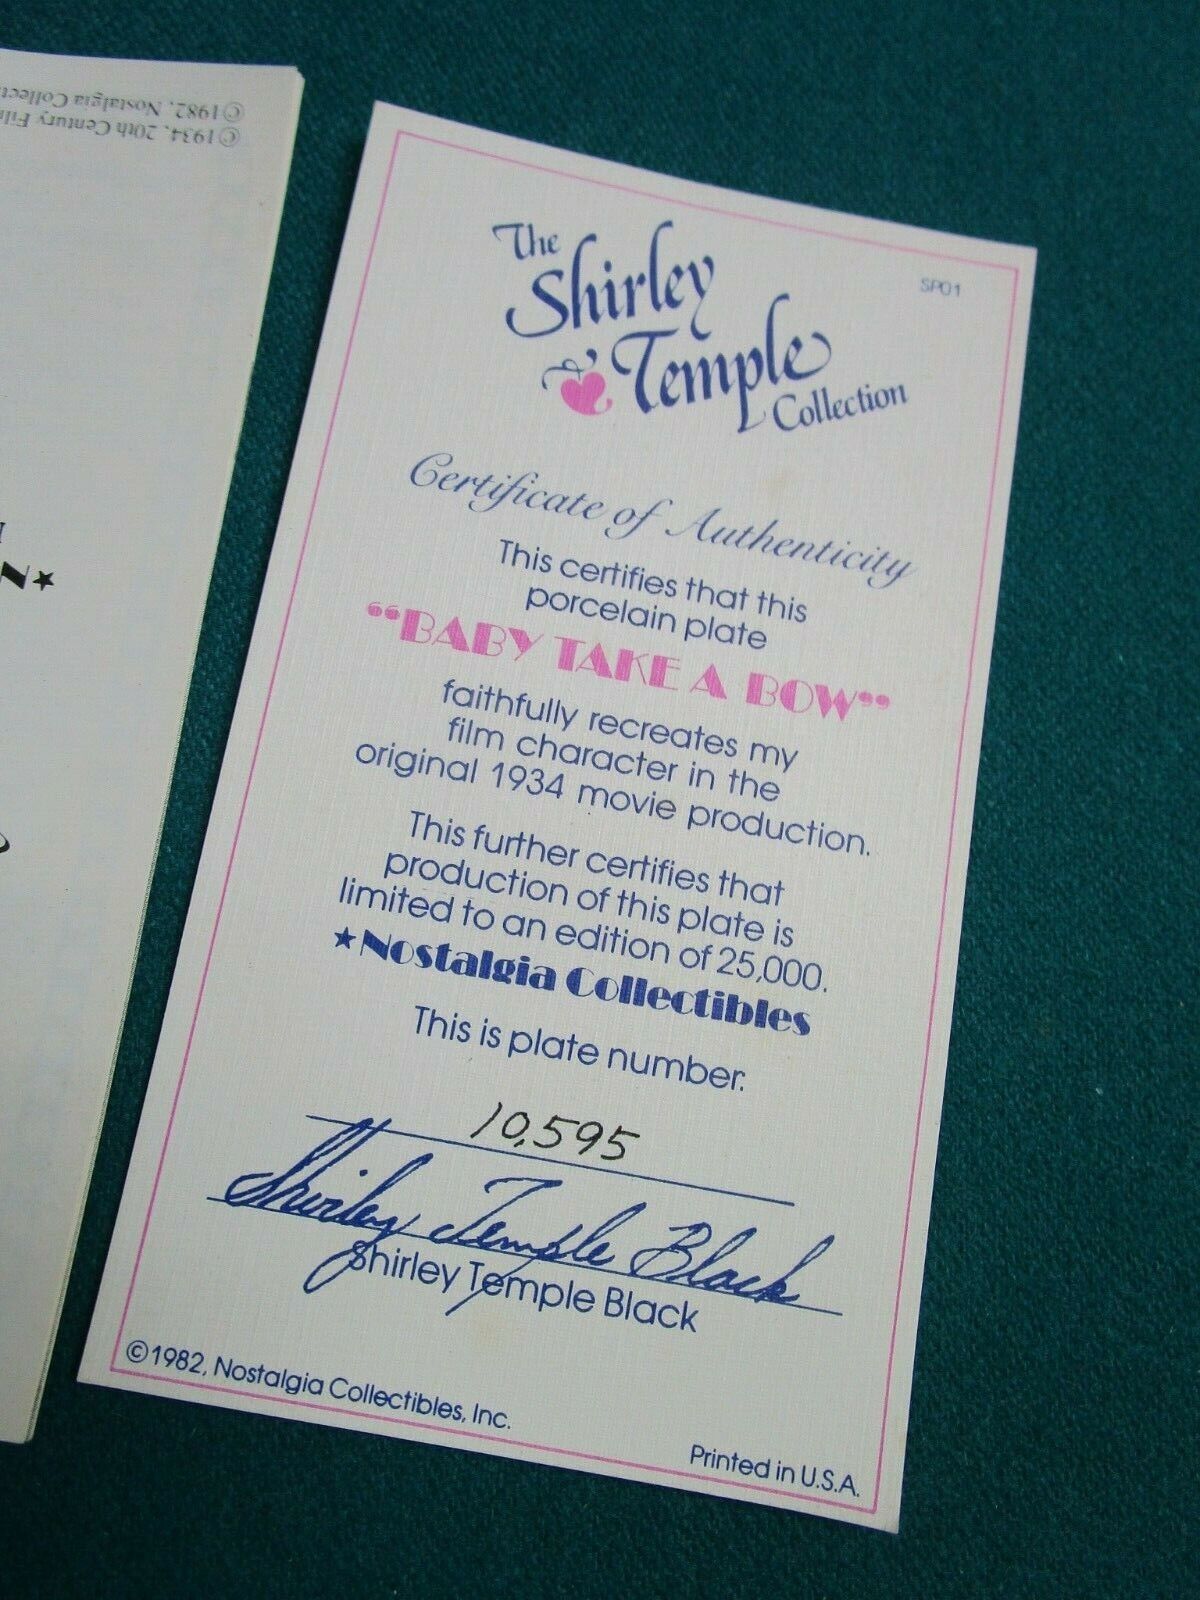 ©1982, Nostalgia
©1934, 20th Century
The
Shirley
Temple
Collection
SP01
Certificate of Authenticity
This certifies that this
porcelain plate
“BABY TAKE A BOW”
faithfully recreates my
film character in the
original 1934 movie production.
This further certifies that
production of this plate is
limited to an edition of 25,000.
★Nostalgia Collectibles
This is plate number:
10,595
Shirley Temple Black
Shirley Temple Black
©1982, Nostalgia Collectibles, Inc.
Printed in U.S.A.